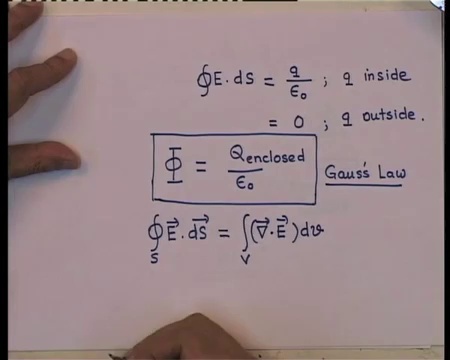 ∮E.dS = q/ε₀ ; q inside
= 0 ; q outside.
Φ = Qenclosed/ε₀ Gauss's Law
∮_S E⃗.dS⃗ = ∫_V (∇⃗.E⃗)dv